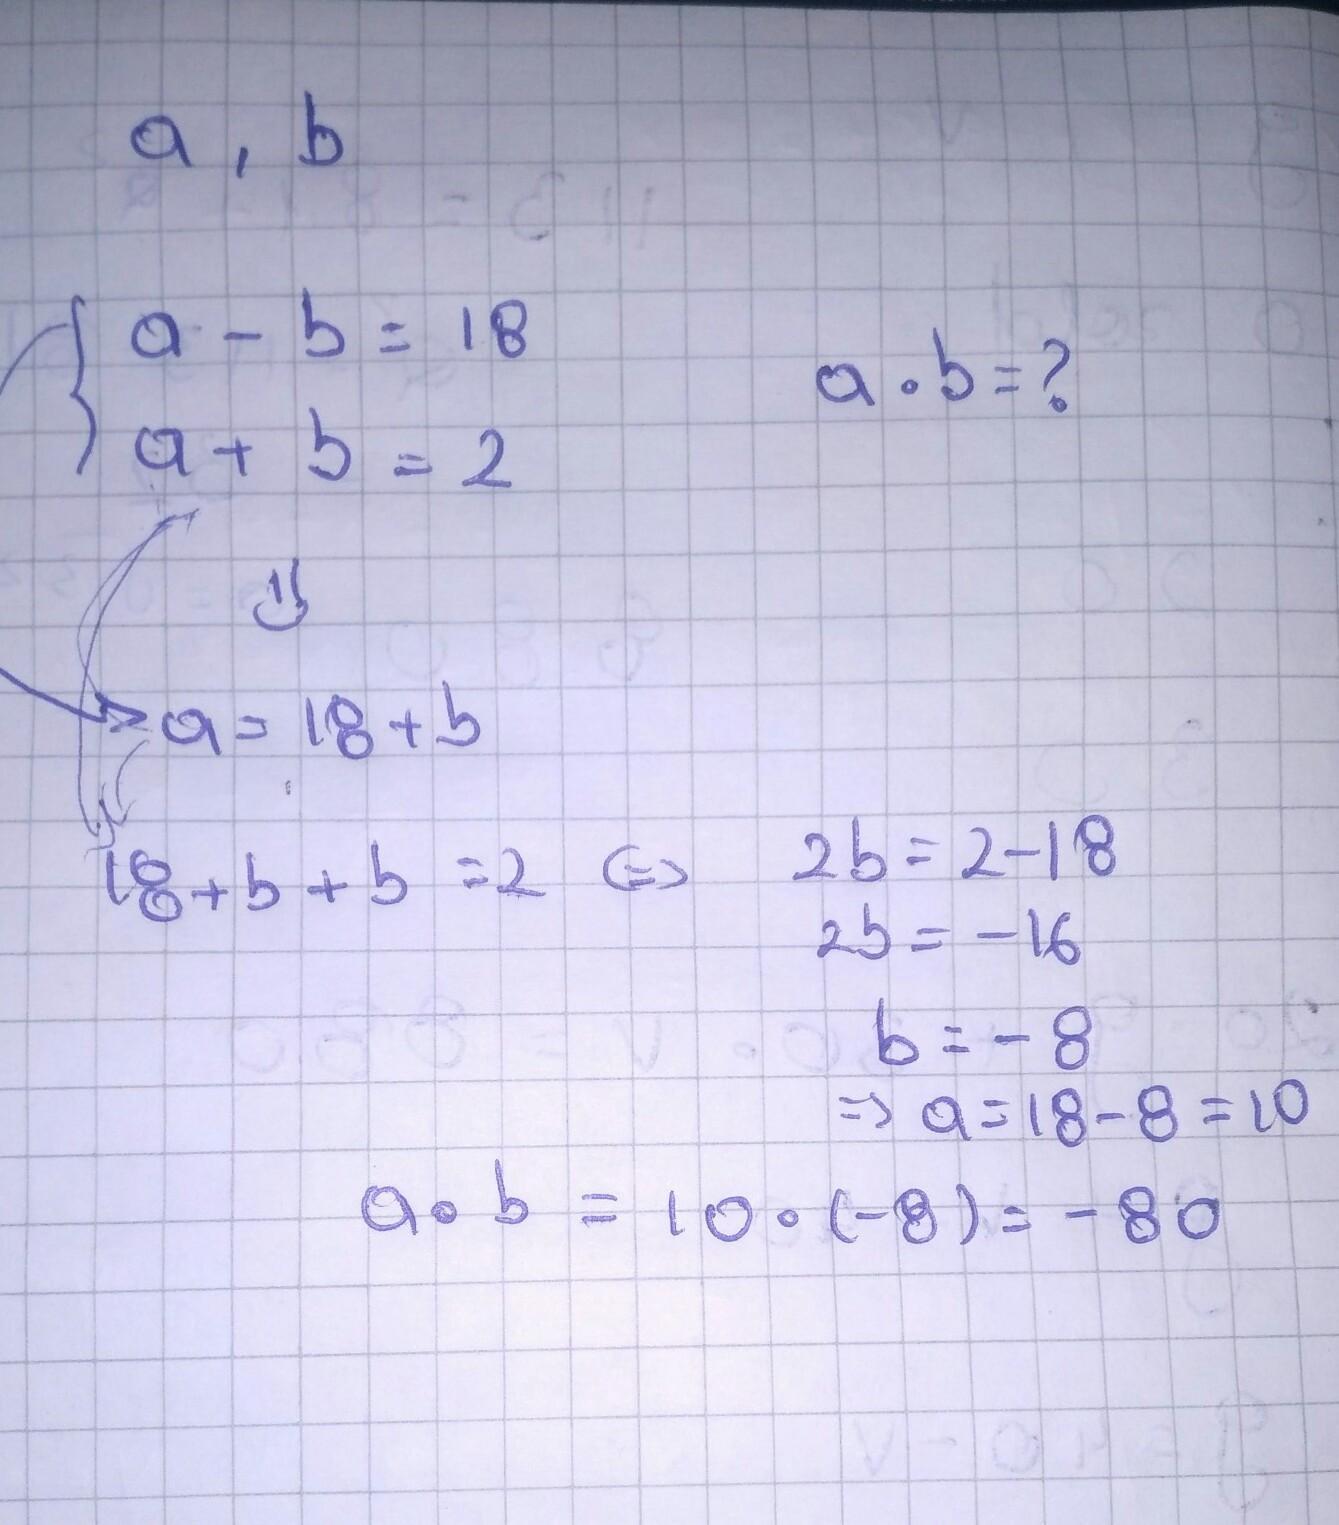 a, b
a - b = 18
a + b = 2
a · b = ?
⇓
a = 18 + b
18 + b + b = 2 ⇔ 2b = 2 - 18
2b = - 16
b = - 8
⇒ a = 18 - 8 = 10
a · b = 10 · (-8) = - 80